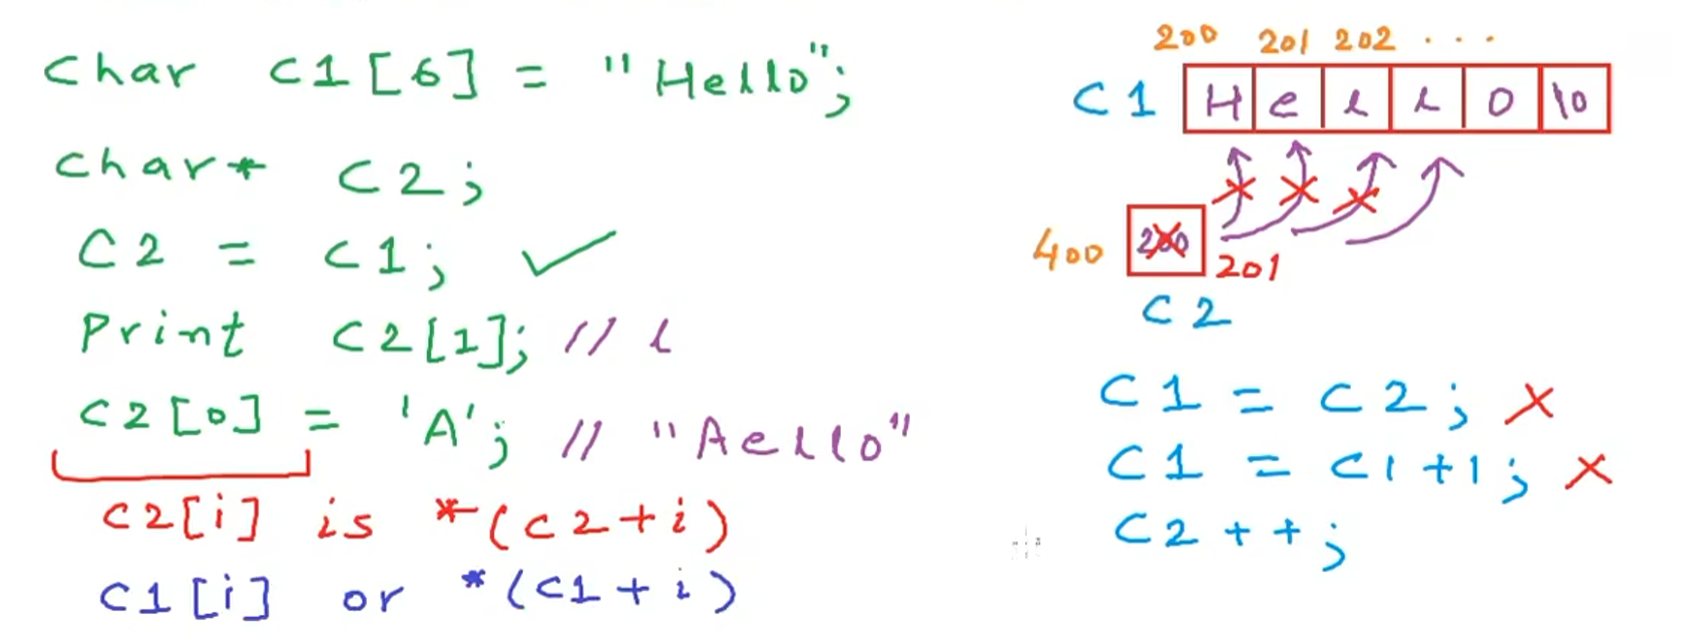 char C1[6] = "Hello";
char* C2;
C2 = C1; ✓
Print C2[1]; // l
C2[0] = 'A'; // "Aello"
C2[i] is *(C2+i)
C1[i] or *(C1+i)
200 201 202 ...
C1 H e l l o \0
400 200 201
C2
C1 = C2; X
C1 = C1+1; X
C2++;